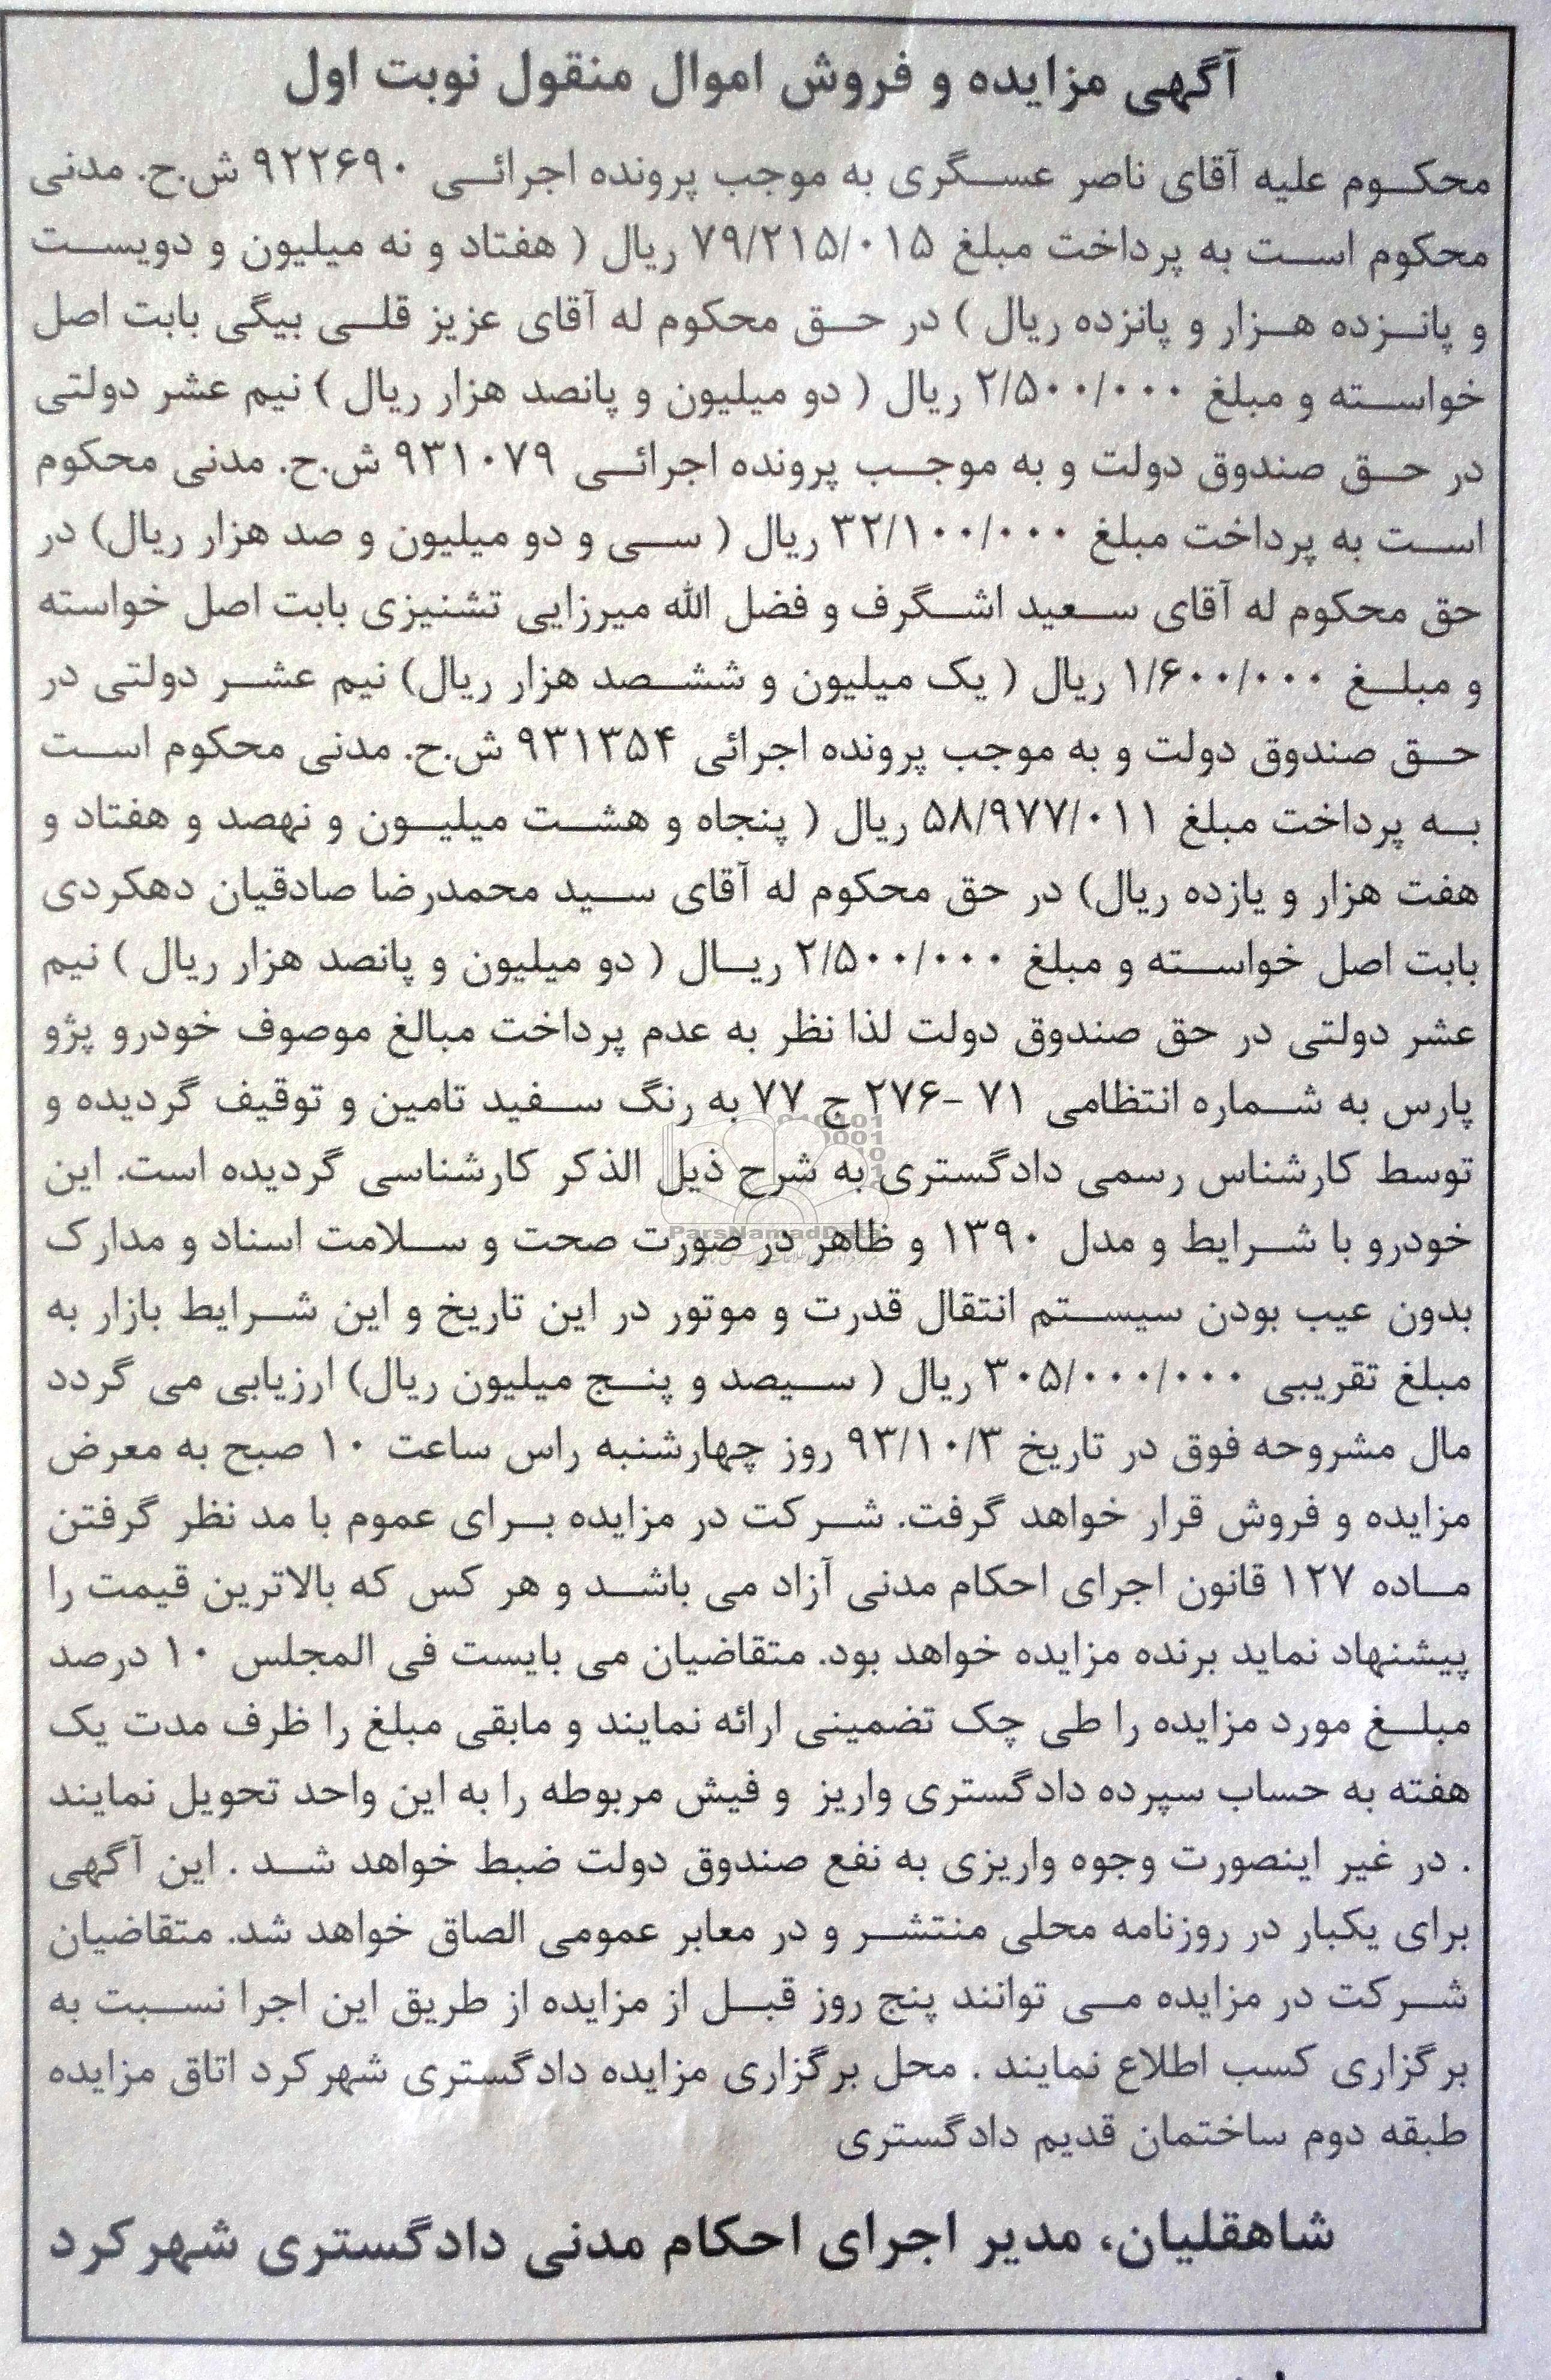 آگهی مزایده و فروش اموال منقول نوبت اول
محکوم علیه آقای ناصر عسگری به موجب پرونده اجرائی ۹۲۲۶۹۰ ش.ح. مدنی
محکوم است به پرداخت مبلغ ۷۹/۲۱۵/۰۱۵ ریال ( هفتاد و نه میلیون و دویست
و پانزده هزار و پانزده ریال ) در حق محکوم له آقای عزیز قلی بیگی بابت اصل
خواسته و مبلغ ۲/۵۰۰/۰۰۰ ریال ( دو میلیون و پانصد هزار ریال ) نیم عشر دولتی
در حق صندوق دولت و به موجب پرونده اجرائی ۹۳۱۰۷۹ ش.ح. مدنی محکوم
است به پرداخت مبلغ ۳۲/۱۰۰/۰۰۰ ریال ( سی و دو میلیون و صد هزار ریال) در
حق محکوم له آقای سعید اشگرف و فضل الله میرزایی تشنیزی بابت اصل خواسته
و مبلغ ۱/۶۰۰/۰۰۰ ریال ( یک میلیون و ششصد هزار ریال) نیم عشر دولتی در
حق صندوق دولت و به موجب پرونده اجرائی ۹۳۱۳۵۴ ش.ح. مدنی محکوم است
به پرداخت مبلغ ۵۸/۹۷۷/۰۱۱ ریال ( پنجاه و هشت میلیون و نهصد و هفتاد و
هفت هزار و یازده ریال) در حق محکوم له آقای سید محمدرضا صادقیان دهکردی
بابت اصل خواسته و مبلغ ۲/۵۰۰/۰۰۰ ریال ( دو میلیون و پانصد هزار ریال ) نیم
عشر دولتی در حق صندوق دولت لذا نظر به عدم پرداخت مبالغ موصوف خودرو پژو
پارس به شماره انتظامی ۷۱ -۲۷۶ ج ۷۷ به رنگ سفید تامین و توقیف گردیده و
توسط کارشناس رسمی دادگستری به شرح ذیل الذکر کارشناسی گردیده است. این
خودرو با شرایط و مدل ۱۳۹۰ و ظاهر در صورت صحت و سلامت اسناد و مدارک
بدون عیب بودن سیستم انتقال قدرت و موتور در این تاریخ و این شرایط بازار به
مبلغ تقریبی ۳۰۵/۰۰۰/۰۰۰ ریال ( سیصد و پنج میلیون ریال) ارزیابی می گردد
مال مشروحه فوق در تاریخ ۹۳/۱۰/۳ روز چهارشنبه راس ساعت ۱۰ صبح به معرض
مزایده و فروش قرار خواهد گرفت. شرکت در مزایده برای عموم با مد نظر گرفتن
ماده ۱۲۷ قانون اجرای احکام مدنی آزاد می باشد و هر کس که بالاترین قیمت را
پیشنهاد نماید برنده مزایده خواهد بود. متقاضیان می بایست فی المجلس ۱۰ درصد
مبلغ مورد مزایده را طی چک تضمینی ارائه نمایند و مابقی مبلغ را ظرف مدت یک
هفته به حساب سپرده دادگستری واریز و فیش مربوطه را به این واحد تحویل نمایند
. در غیر اینصورت وجوه واریزی به نفع صندوق دولت ضبط خواهد شد . این آگهی
برای یکبار در روزنامه محلی منتشر و در معابر عمومی الصاق خواهد شد. متقاضیان
شرکت در مزایده می توانند پنج روز قبل از مزایده از طریق این اجرا نسبت به
برگزاری کسب اطلاع نمایند . محل برگزاری مزایده دادگستری شهرکرد اتاق مزایده
طبقه دوم ساختمان قدیم دادگستری
شاهقلیان، مدیر اجرای احکام مدنی دادگستری شهرکرد
ParsNamadData